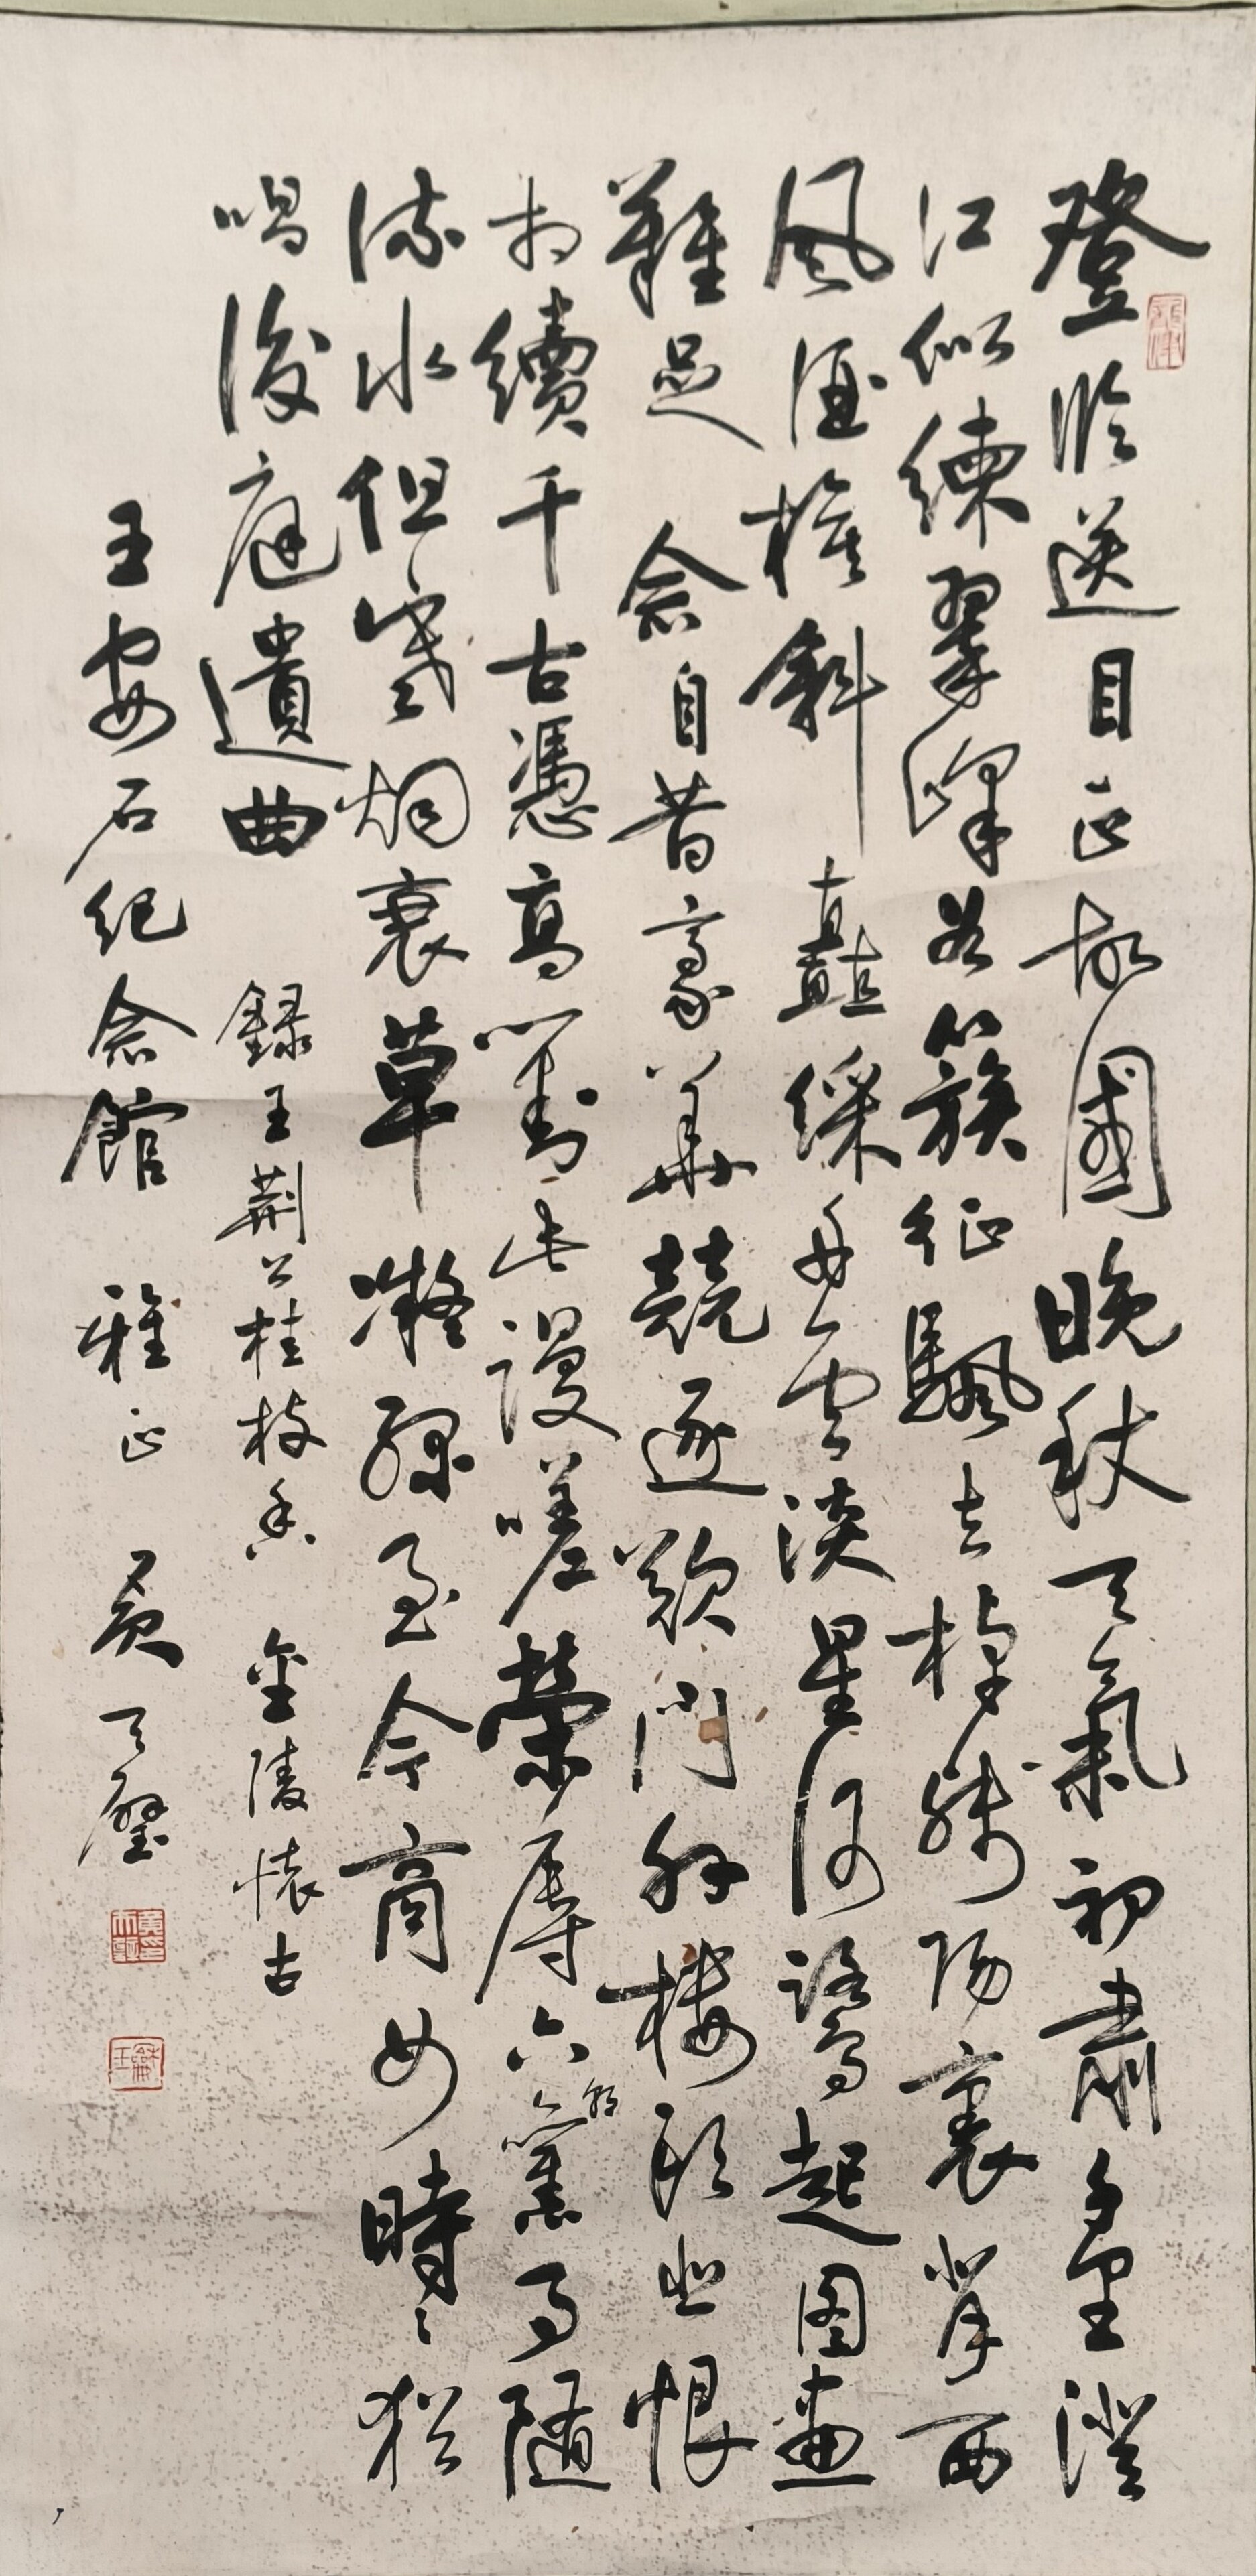 登臨送目正故國晚秋天氣初肅千里澄
江似練翠峰若簇征颿去棹殘陽裏背西
風酒旗斜矗綵舟雲淡星河鷺起图畫
難足念自昔豪華競逐歎門外樓頭悲恨
相續千古憑高對此謾嗟榮辱六朝舊事隨
流水但寒烟衰草凝綠至今商女時々猶
唱後庭遺曲 錄王荊公桂枝香 金陵懷古
王安石紀念館 雅正 黃天璧